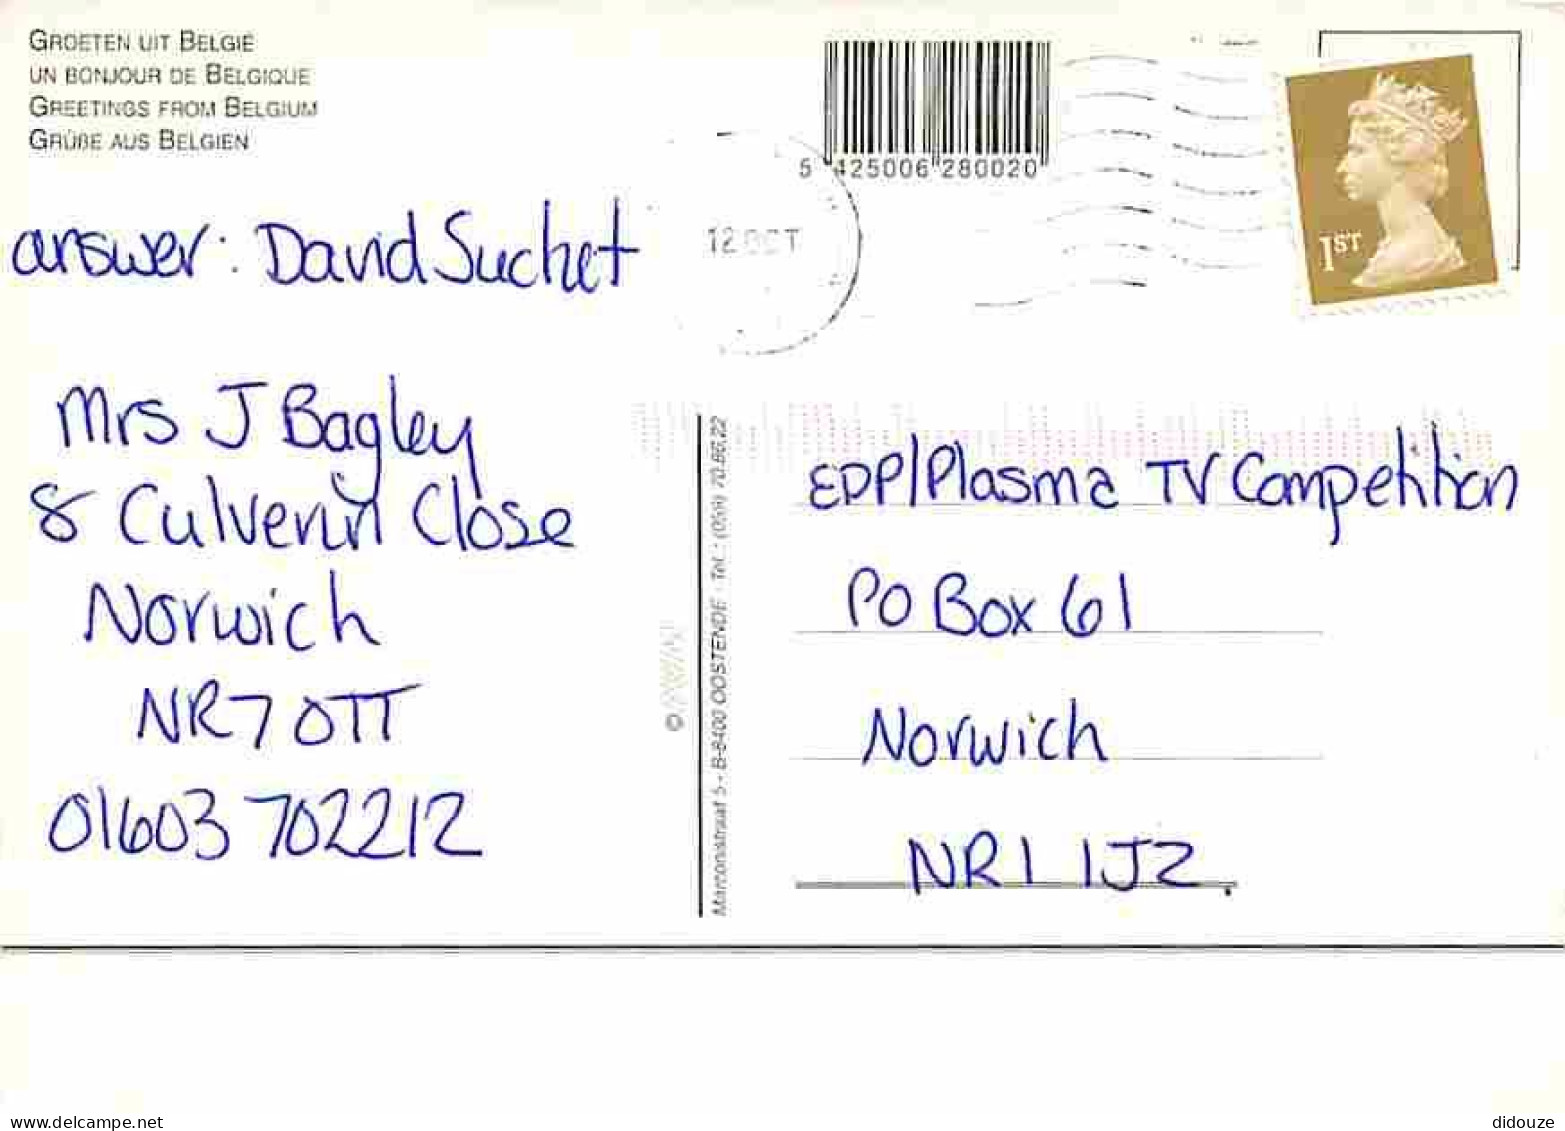 GROETEN UIT BELGIË
UN BONJOUR DE BELGIQUE
GREETINGS FROM BELGIUM
GRÜßE AUS BELGIEN
5 425006 280020
12 OCT
1ST
answer: David Suchet
Mrs J Bagley
8 Culverin Close
Norwich
NR7 0TT
01603 702212
©
Marconistraat 5 - B-8400 OOSTENDE - Tel.: (059) 70.86.22
EDP/Plasma TV Competition
PO Box 61
Norwich
NR1 1JZ.
delcampe.net
didouze